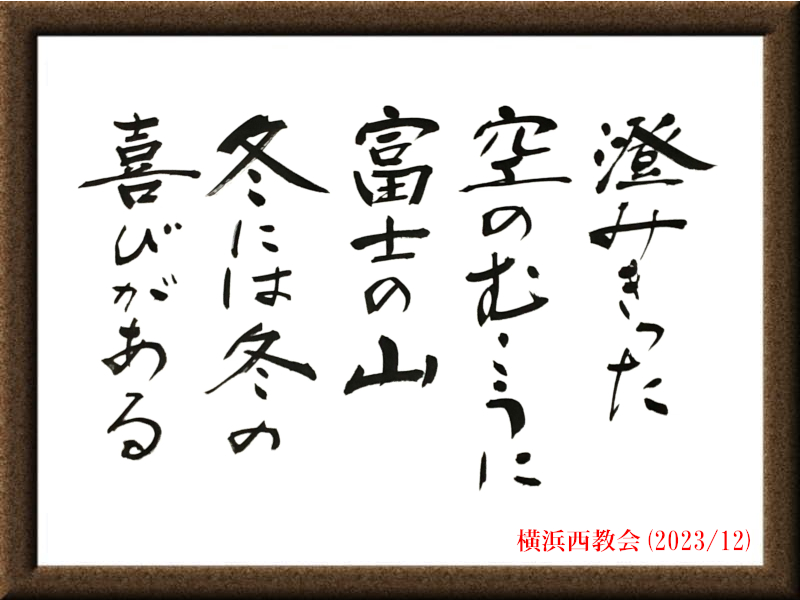 澄みきった
空のむこうに
富士の山
冬には冬の
喜びがある
横浜西教会 (2023/12)